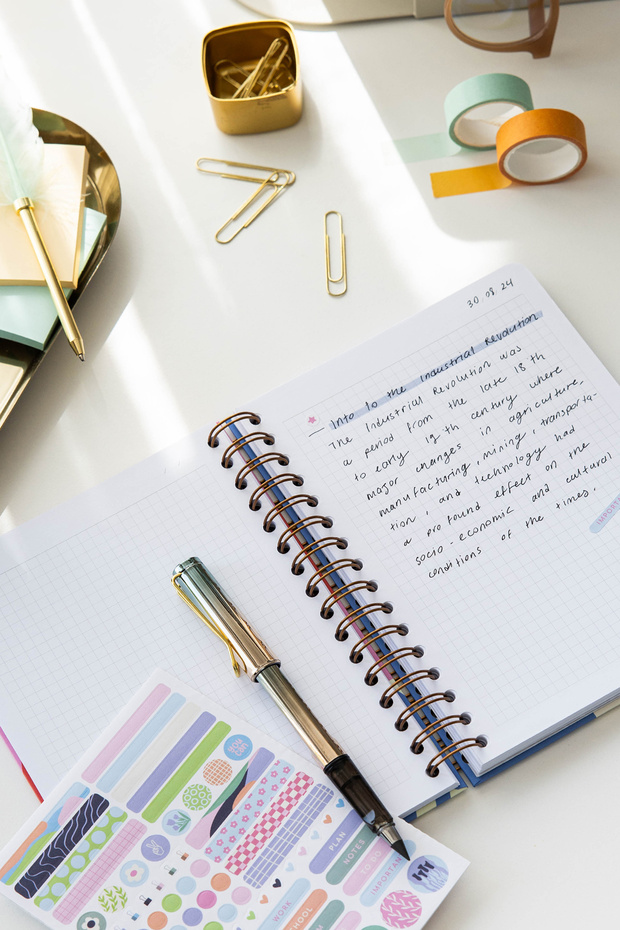 30.08.24
Into to the Industrial Revolution
The Industrial Revolution was
a period from the late 18th
to early 19th century where
major changes in agriculture,
manufacturing, mining, transporta-
tion, and technology had
a profound effect on the
socio-economic and cultural
conditions of the times.
IMPORTA
PLAN
NOTES
TO DO
IMPORTANT
WORK
SCHOOL